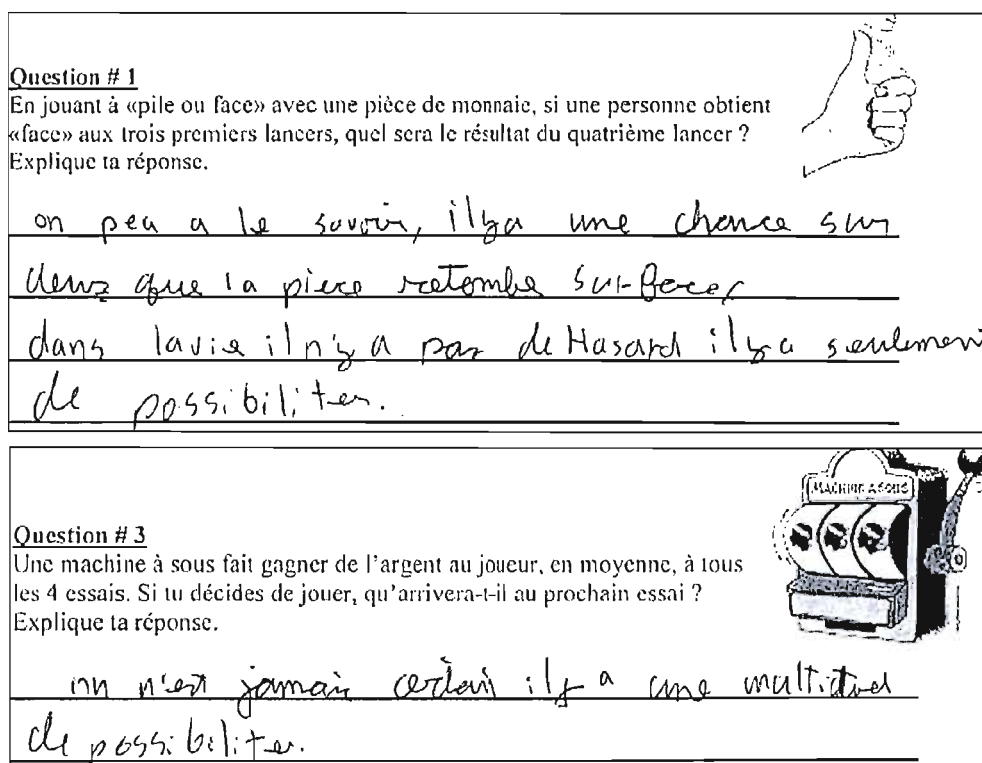 Question # 1
En jouant à «pile ou face» avec une pièce de monnaie, si une personne obtient
«face» aux trois premiers lancers, quel sera le résultat du quatrième lancer ?
Explique ta réponse.
on peu a le savoir, il y a une chance sur
deux que la piece retombe sur
dans la vie il n'y a pas de Hasard il y a seulement
de possibiliter.
MACHINE A SOUS
Question # 3
Une machine à sous fait gagner de l'argent au joueur, en moyenne, à tous
les 4 essais. Si tu décides de jouer, qu'arrivera-t-il au prochain essai ?
Explique ta réponse.
on n'est jamais certain il y a une multitud
de possibiliter.